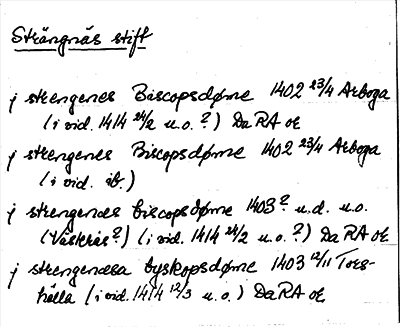 Strängnäs stift
j strengenes Bascopsdøme 1402 23/4 Arboga
(i vid. 1414 24/2 u.o.?) Da RA or
j strengenes Biscopsdøme 1402 23/4 Arboga
(i vid. ib.)
j strengenæs biscopsdøme 1403? u.d. u.o.
(Västerås?) (i vid. 1414 24/2 u.o.?) Da RA or
j strengenæsa byskopsdøme 1403 12/11 Tors-
hälla (i vid. 1414 12/3 u.o.) Da RA or